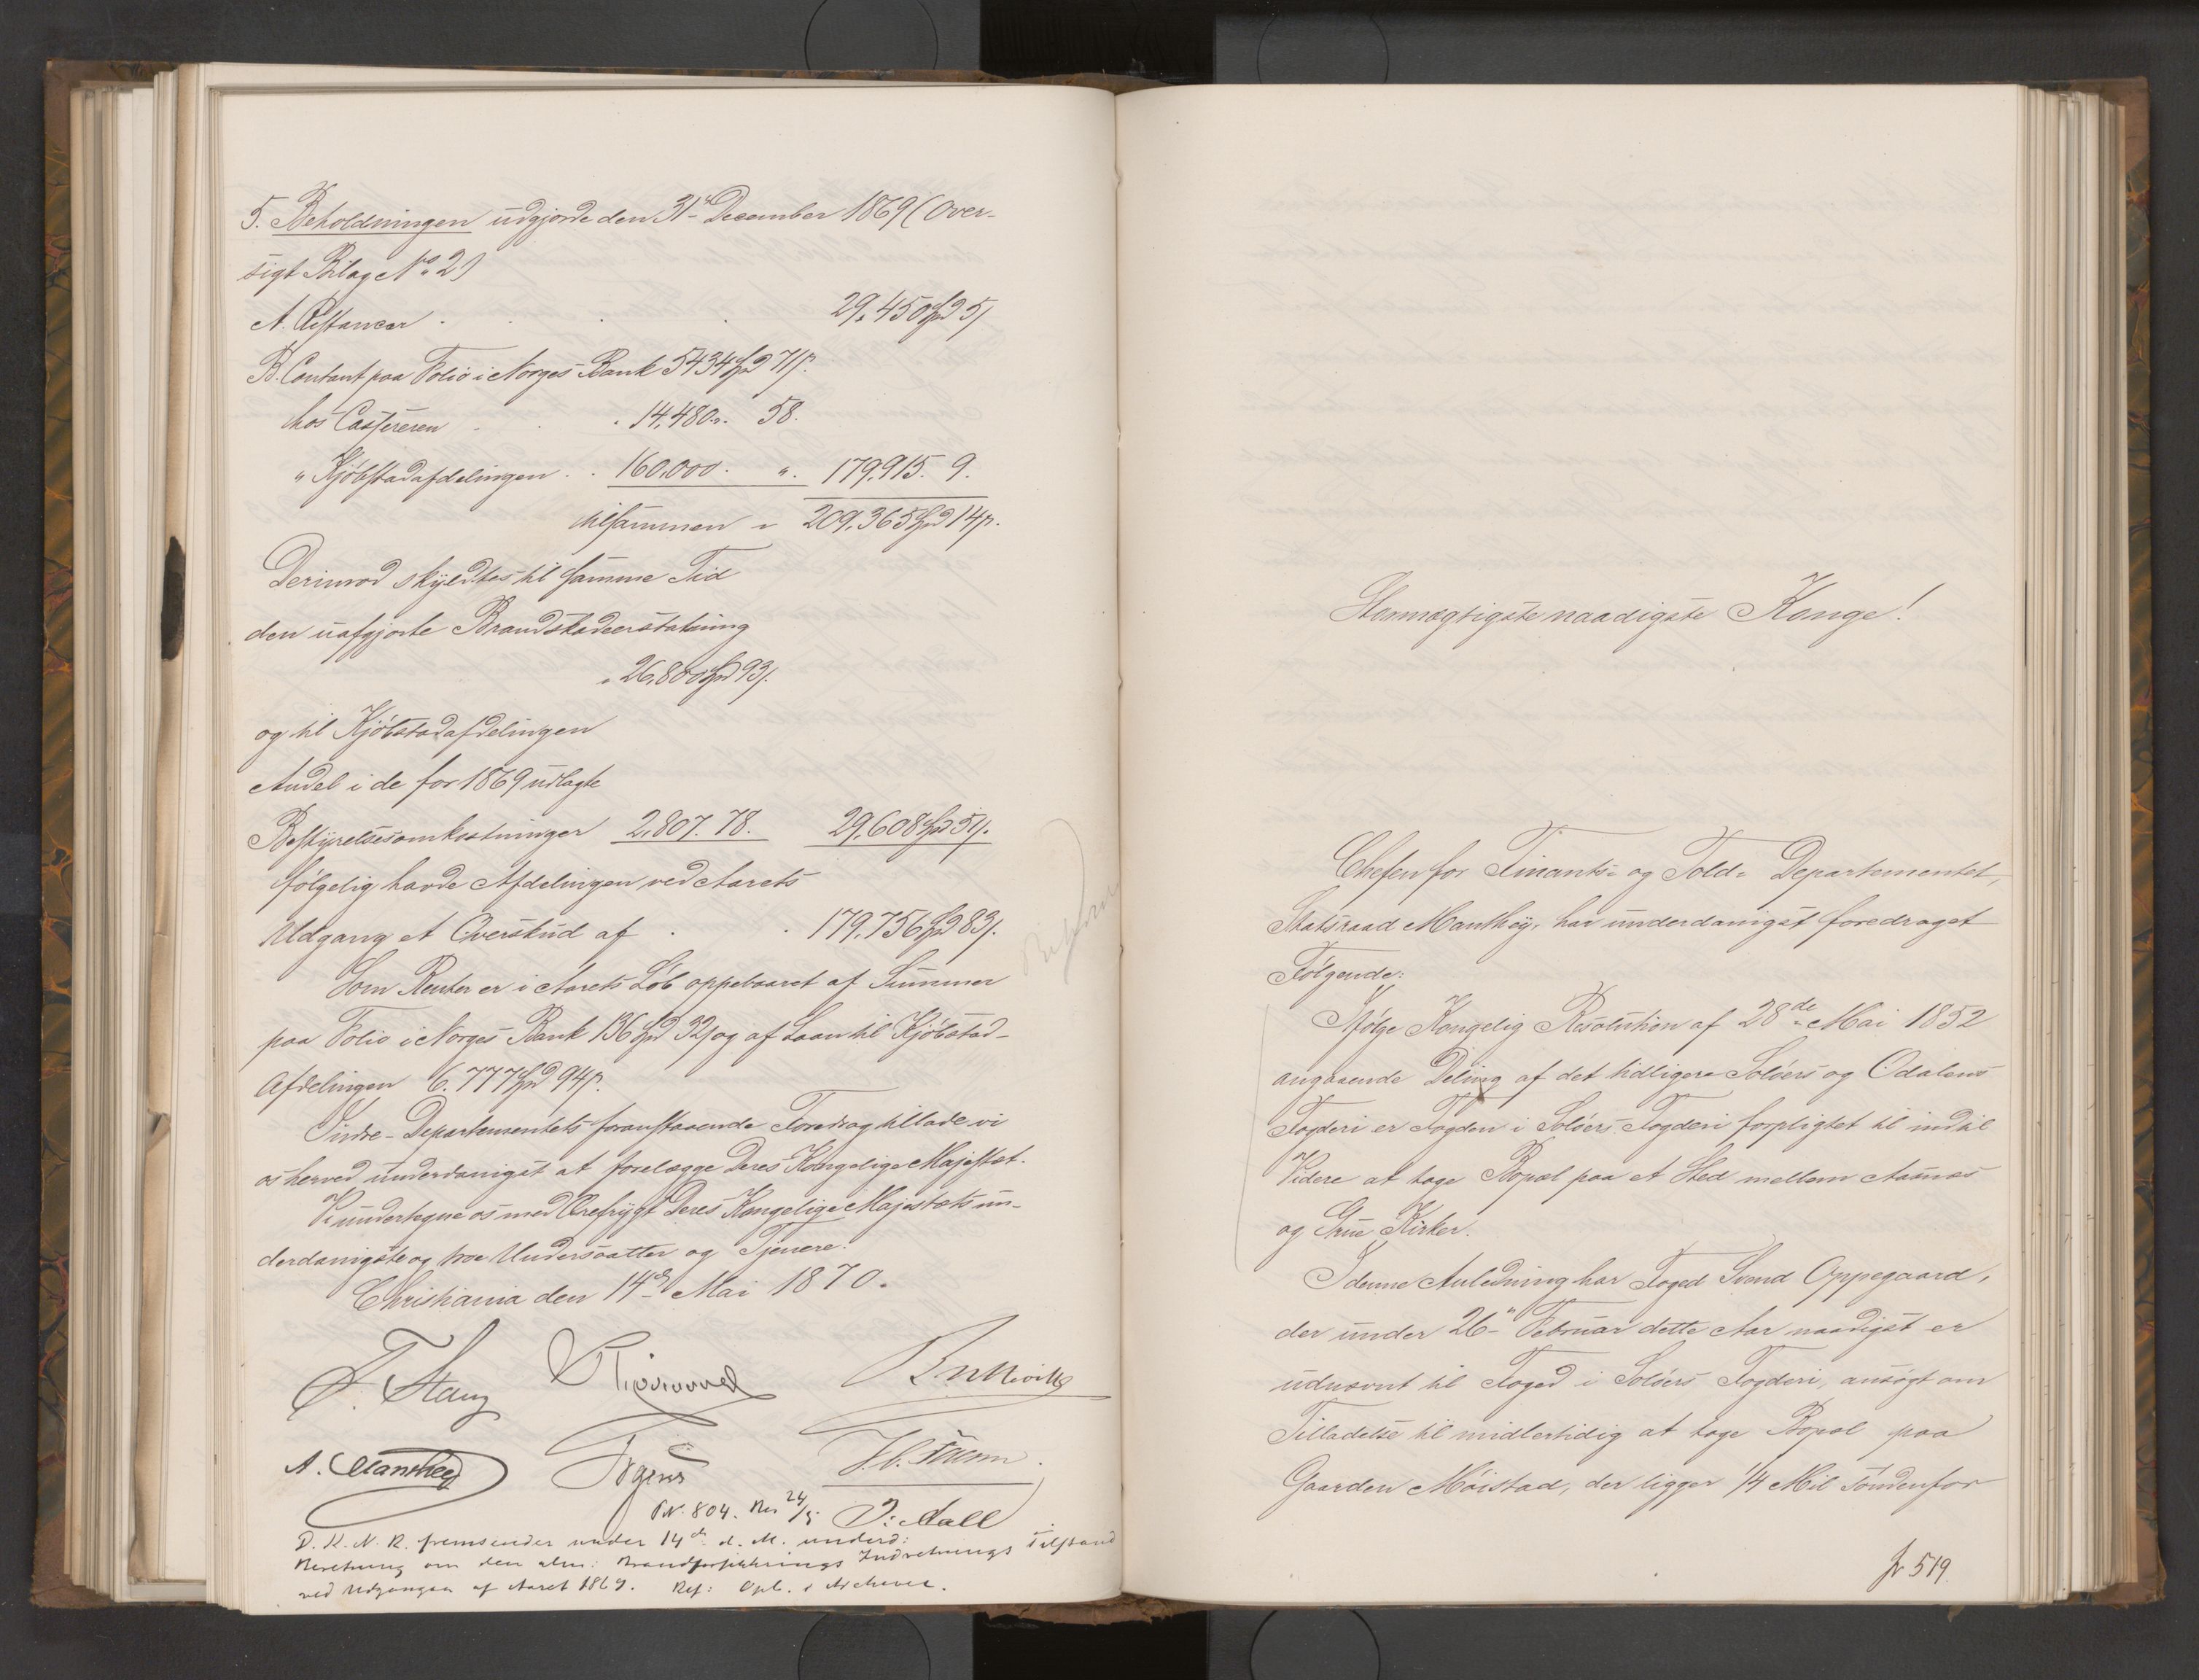 5. Beholdningen udgjorde den 31te December 1869 (Over-
sigt Bilag No. 2)
A. Restancer . . . 29,450 Spd 5 s.
B. Contant paa Folio i Norges Bank 5434 Spd 71 s.
hos Cassereren . . . 14,480 „ 58.
„ Kjøbstadafdelingen . . 160,000. „. 179,915. 9.
tilsammen „ 209,365 Spd 14 s.
Derimod skyldtes til samme Tid
den uafgjorte Brandskadeerstatning
„ 26,800 Spd 93 s.
og til Kjøbstadafdelingen
Andel i de for 1869 udlagte
Bestyrelsesomkostninger 2,807. 78. 29,608 Spd 51 s.
følgelig havde Afdelingen ved Aarets
Udgang et Overskud af . . 179,756 Spd 83 s.
Som Renter er i Aarets Løb oppebaaret af Summer
paa Folio i Norges Bank 136 Spd 32 s og af Laan til Kjøbstad-
Afdelingen 6,777 Spd 94 s.
Indre-Departementets foranstaaende Foredrag tillade vi
os herved underdanigst at forelægge Deres Kongelige Majestæt.
Vi undertegne os med Ærefrygt Deres Kongelige Majestæts un-
derdanigste og troe Undersaatter og Tjenere.
Christiania den 14de Mai 1870.
F. Stang
A. Manthey
J. Aall
PN. 804. Res 24/5
D. K. N. R. fremsender under 14de d. M. underd:
Beretning om den alm: Brandforsikkrings Indretnings Tilstand
ved Udgangen af Aaret 1869. Ref: Opl. i Archivet.
Stormægtigste naadigste Konge!
Chefen for Finants- og Told-Departementet,
Statsraad Manthey, har underdanigst foredraget
Følgende:
Ifølge Kongelig Resolution af 28de Mai 1852
angaaende Deling af det tidligere Soløers og Odalens
Fogderi er Fogden i Soløers Fogderi forpligtet til indtil
Videre at tage Bopæl paa et Sted mellem Aasnæs
og Grue Kirker.
I denne Anledning har Foged Svend Oppegaard,
der under 26de Februar dette Aar naadigst er
udnævnt til Foged i Soløers Fogderi, ansøgt om
Tilladelse til midlertidig at tage Bopæl paa
Gaarden Møistad, der ligger 1/4 Mil søndenfor
Jr 519.